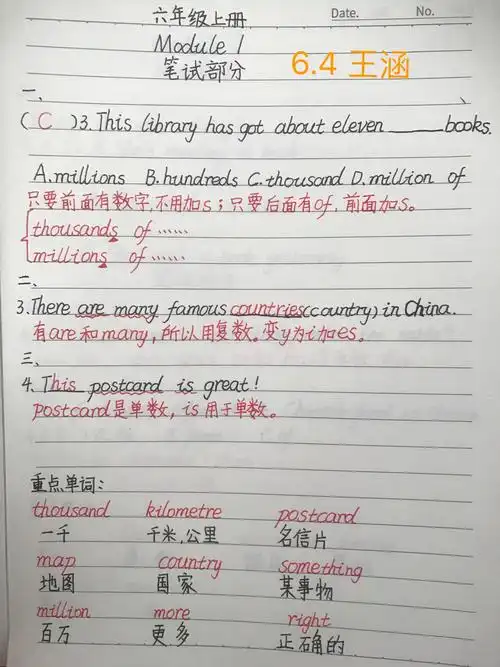 六年级上册 Date. No.
Module 1
笔试部分 6.4 王涵
一、
(C)3.This library has got about eleven ______books.
A.millions B.hundreds C.thousand D.million of
只要前面有数字,不用加s；只要后面有of,前面加s。
thousands of ……
millions of ……
二、
3.There are many famous countries(country) in China.
有are和many,所以用复数。变y为i加es。
三、
4. This postcard is great!
postcard是单数，is用于单数。
重点单词:
thousand kilometre postcard
一千 千米,公里 名信片
map country something
地图 国家 某事物
million more right
百万 更多 正确的